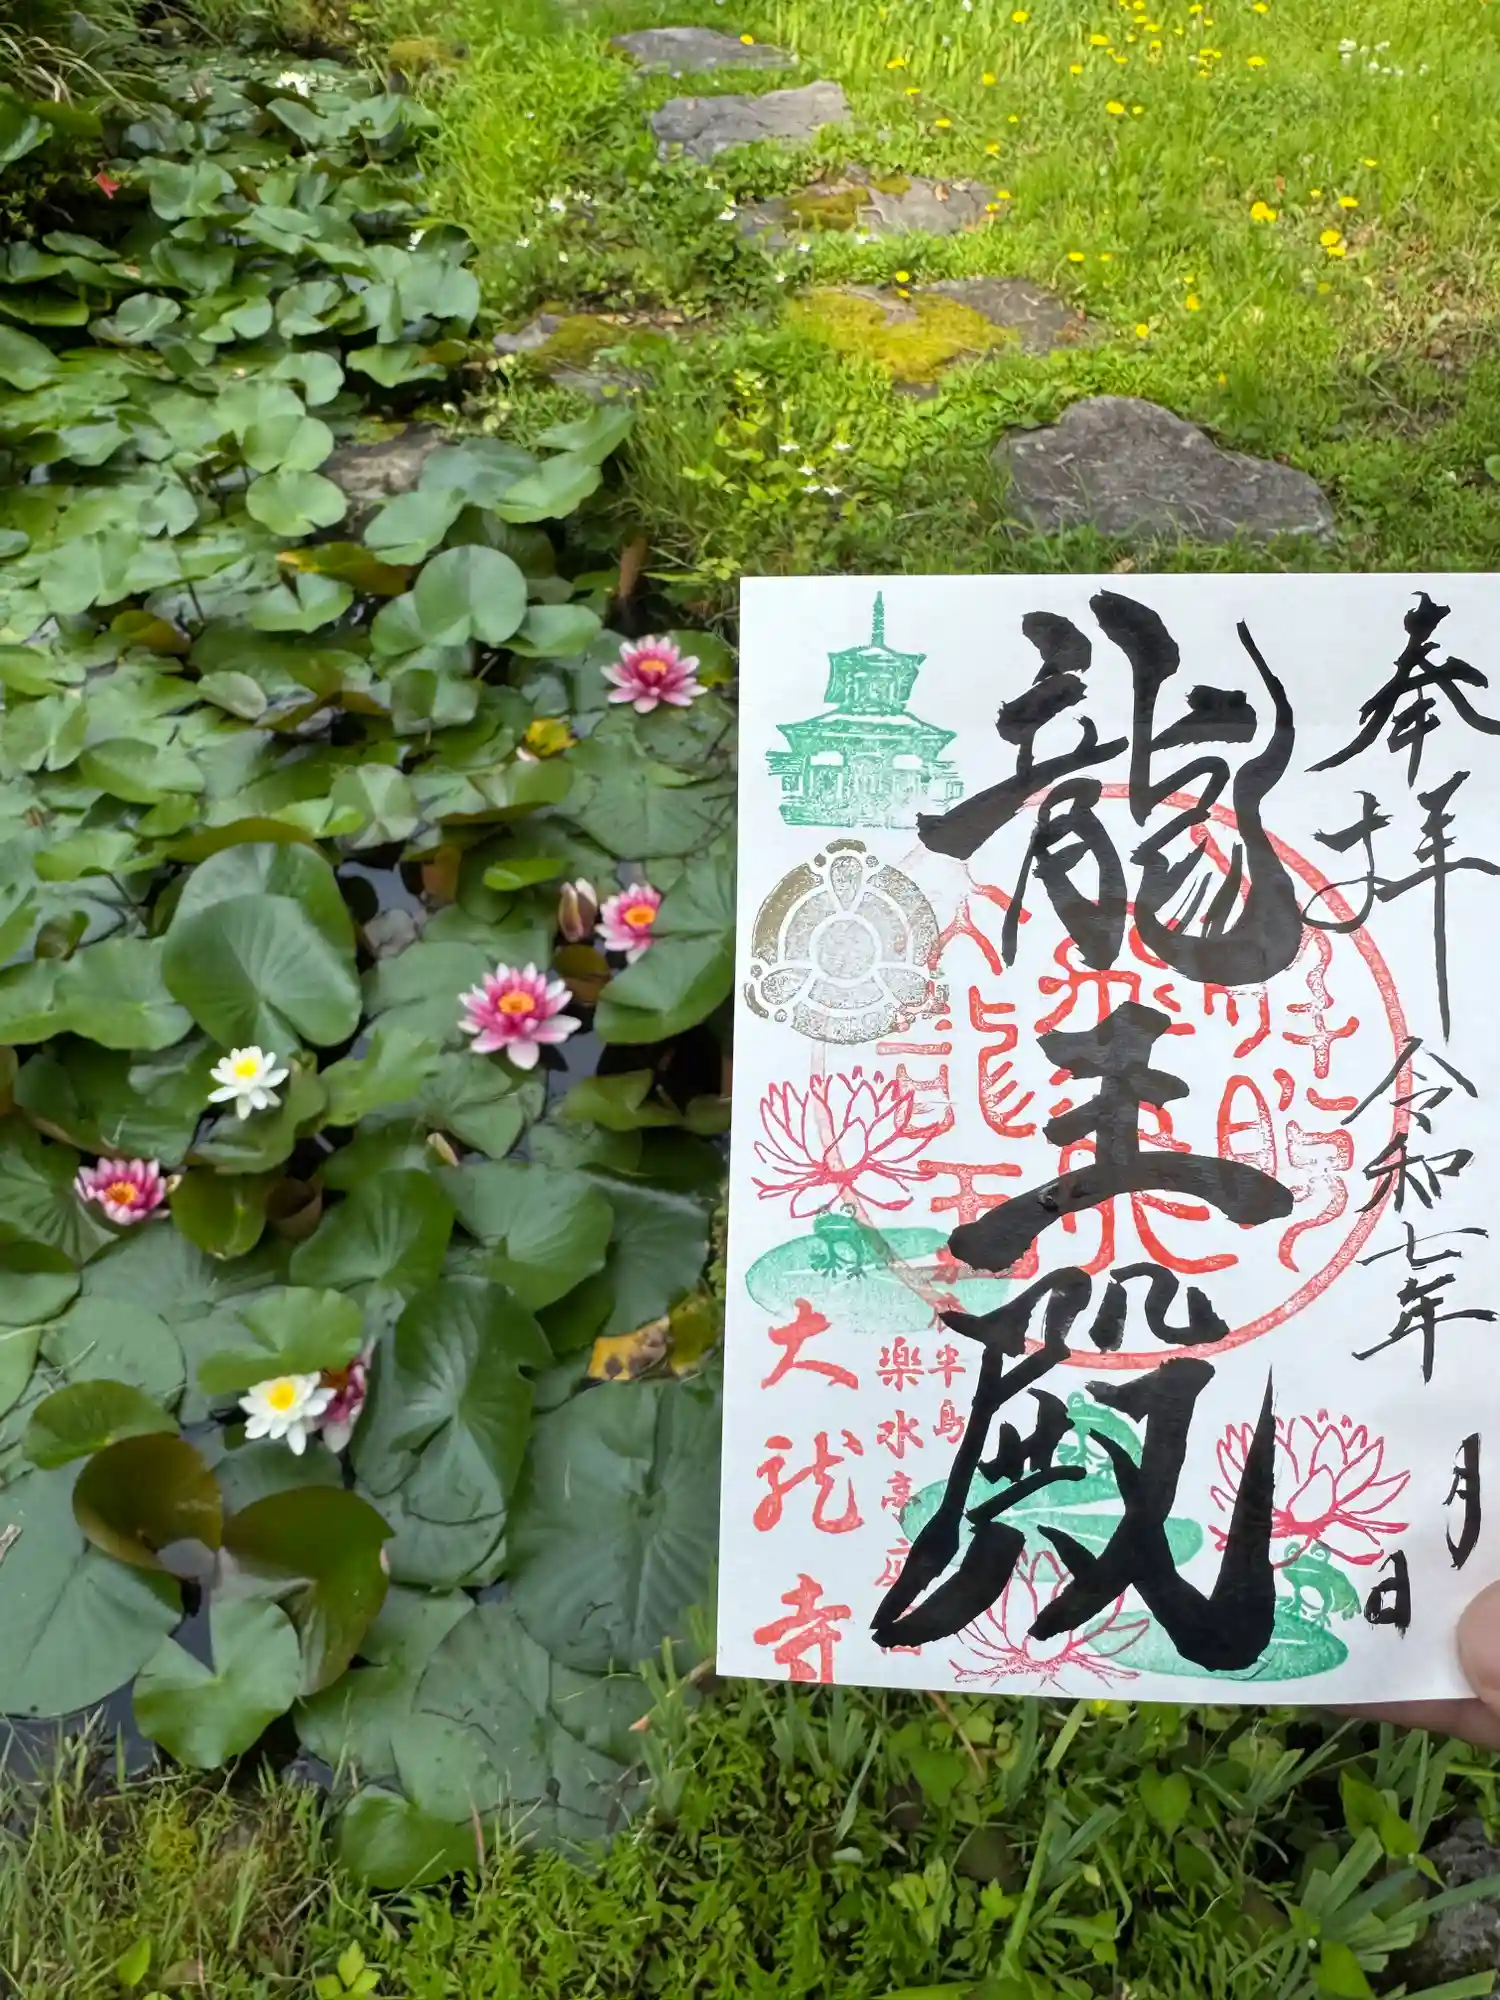 奉拝
令和七年 月 日
龍王殿
半島
楽水亭
大龍寺